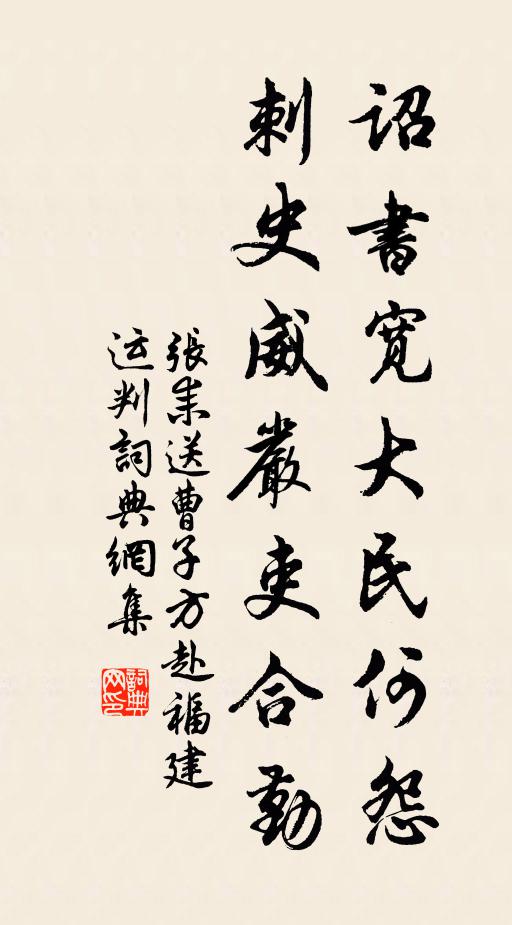 詔書寬大民何怨
刺史威嚴吏合勤
張耒送曹子方赴福建
运判詞典網集
詞典网印